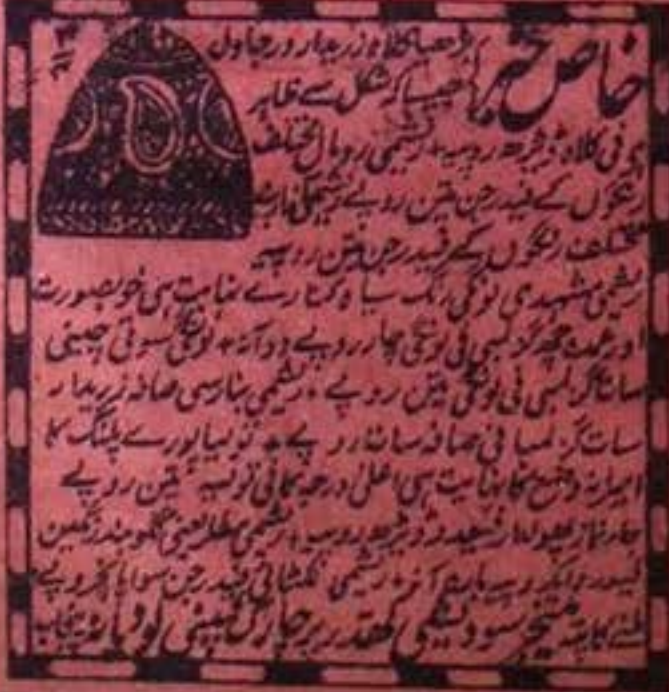 خاص خبر بڑھیا کلاہ زریدار ورچاول
جیسا کہ شکل سے ظاہر
ہے فی کلاہ ڈیڑھ روپیہ + ریشمی رومال مختلف
رنگوں کے فیدرجن تین روپے ریشمی
مختلف رنگوں کے فیدرجن تین روپیہ
ریشمی مشہدی لونگی رنگ سیاہ کنارے نہایت ہی خوبصورت
اور عمدہ چھ گز لمبی فی لونگی چار روپے دو آنہ + لونگی سوتی چینی
ساتگز لمبی فی لونگی تین روپے + ریشمی بنارسی صافہ زریدار
سات گز لمبا فی صافہ سات روپے + تولیا پورے پلنگ کا
امیرانہ وضع کا نہایت ہی اعلیٰ درجہ کا فی تولیہ تین روپے
جانماز پھولدار ڈیڑھ روپیہ + ریشمی مفلر یعنی گلوبند رنگین
ایکروپیہ بارہ آنہ + ریشمی نکٹائی فیدرجن سوا پانچروپے
ملنے کا پتہ منیجر سودیشی کھدر پرچارک کمپنی لودہانہ پنجاب